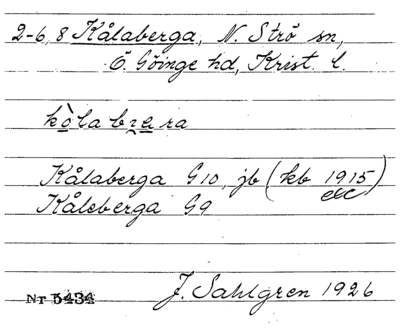 2-6, 8 Kålaberga, N. Strö sn,
Ö Göinge hd, Krist. l.
kòlabɪæra
Kålaberga G10, jb (kb 1915 etc)
Kåleberga G9
J. Sahlgren 1926
Nr 5434